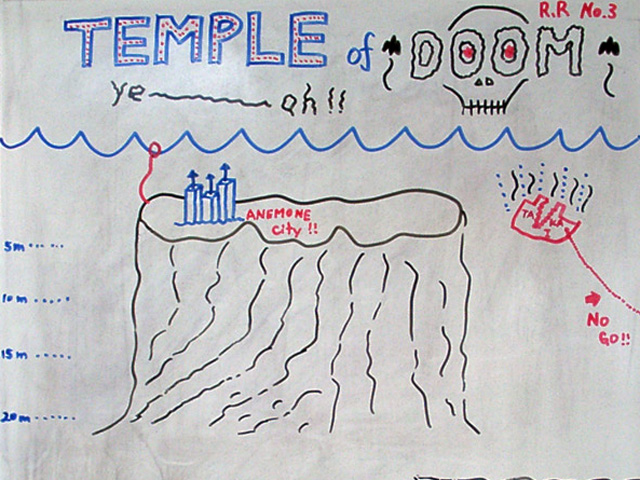 R.R No.3
TEMPLE of DOOM
ye ah!!
ANEMONE
city!!
5m
10m
15m
20m
NO
GO!!